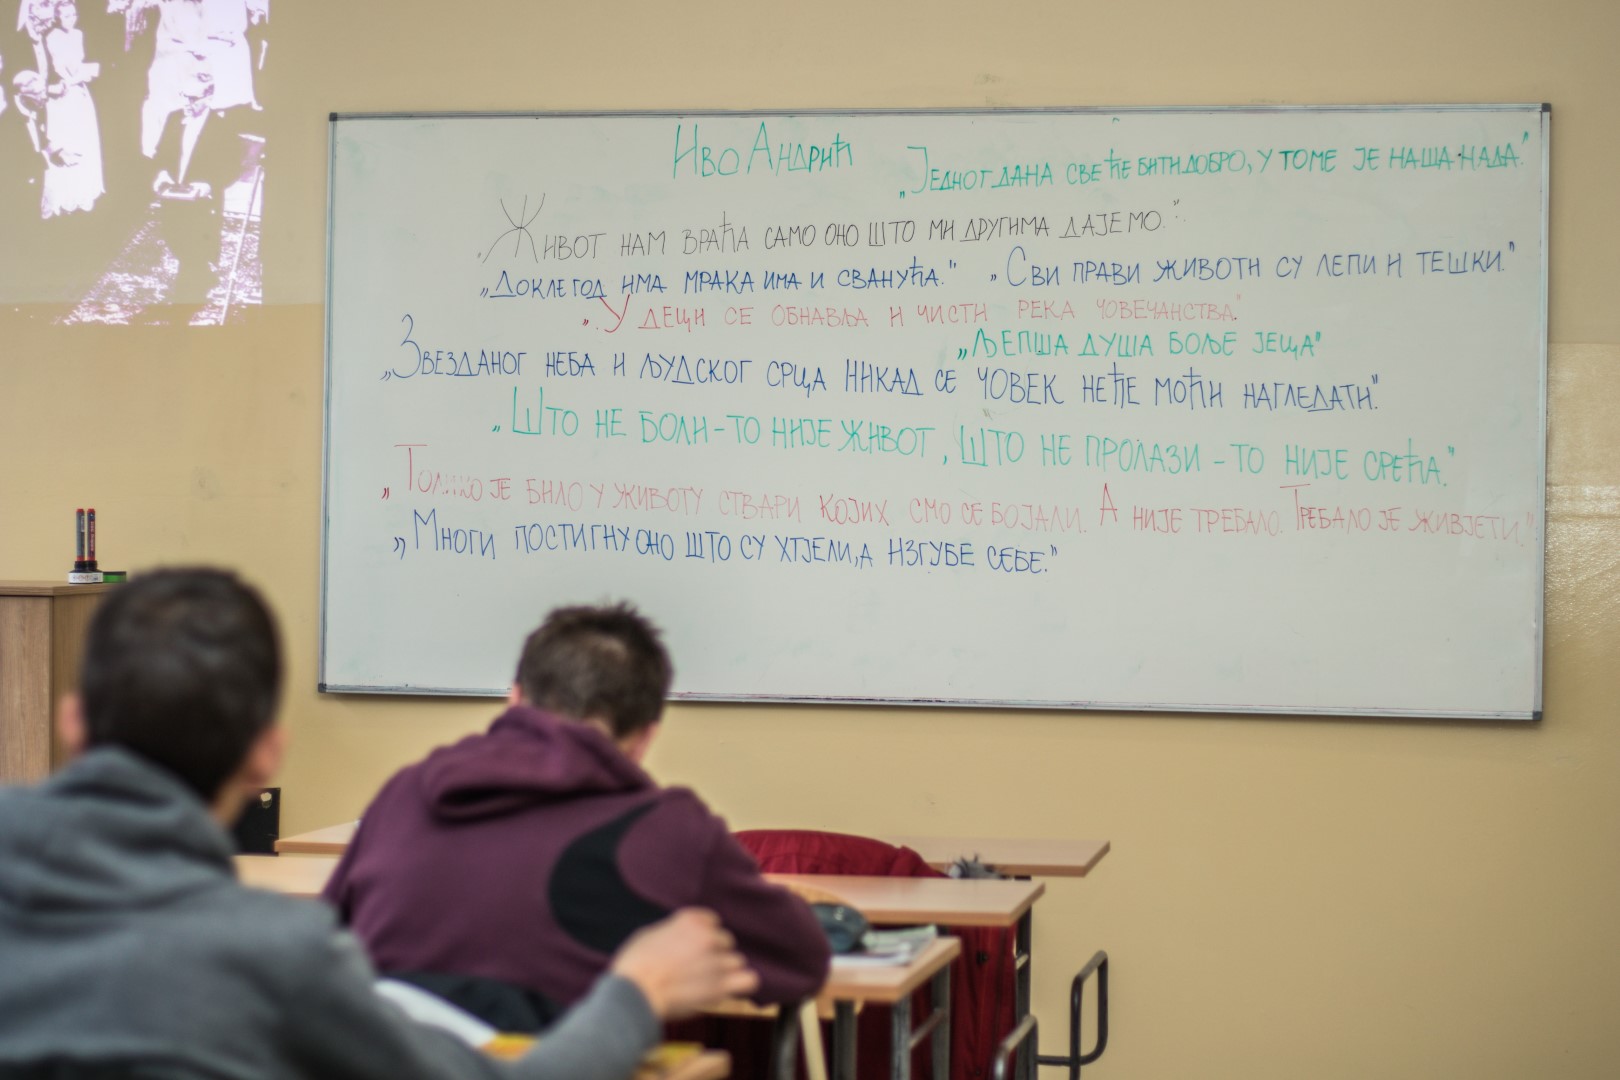 Иво Андрић
„Једног дана све ће бити добро, у томе је наша нада.”
„Живот нам враћа само оно што ми другима дајемо.”
„Докле год има мрака има и сванућа.” „Сви прави животи су лепи и тешки.”
„У деци се обнавља и чисти река човечанства.”
„Љепша душа боље јеца”
„Звезданог неба и људског срца никад се човек неће моћи нагледати.”
„Што не боли - то није живот, што не пролази - то није срећа.”
„Толико је било у животу ствари којих смо се бојали. А није требало. Требало је живјети.”
„Многи постигну оно што су хтјели, а изгубе себе.”